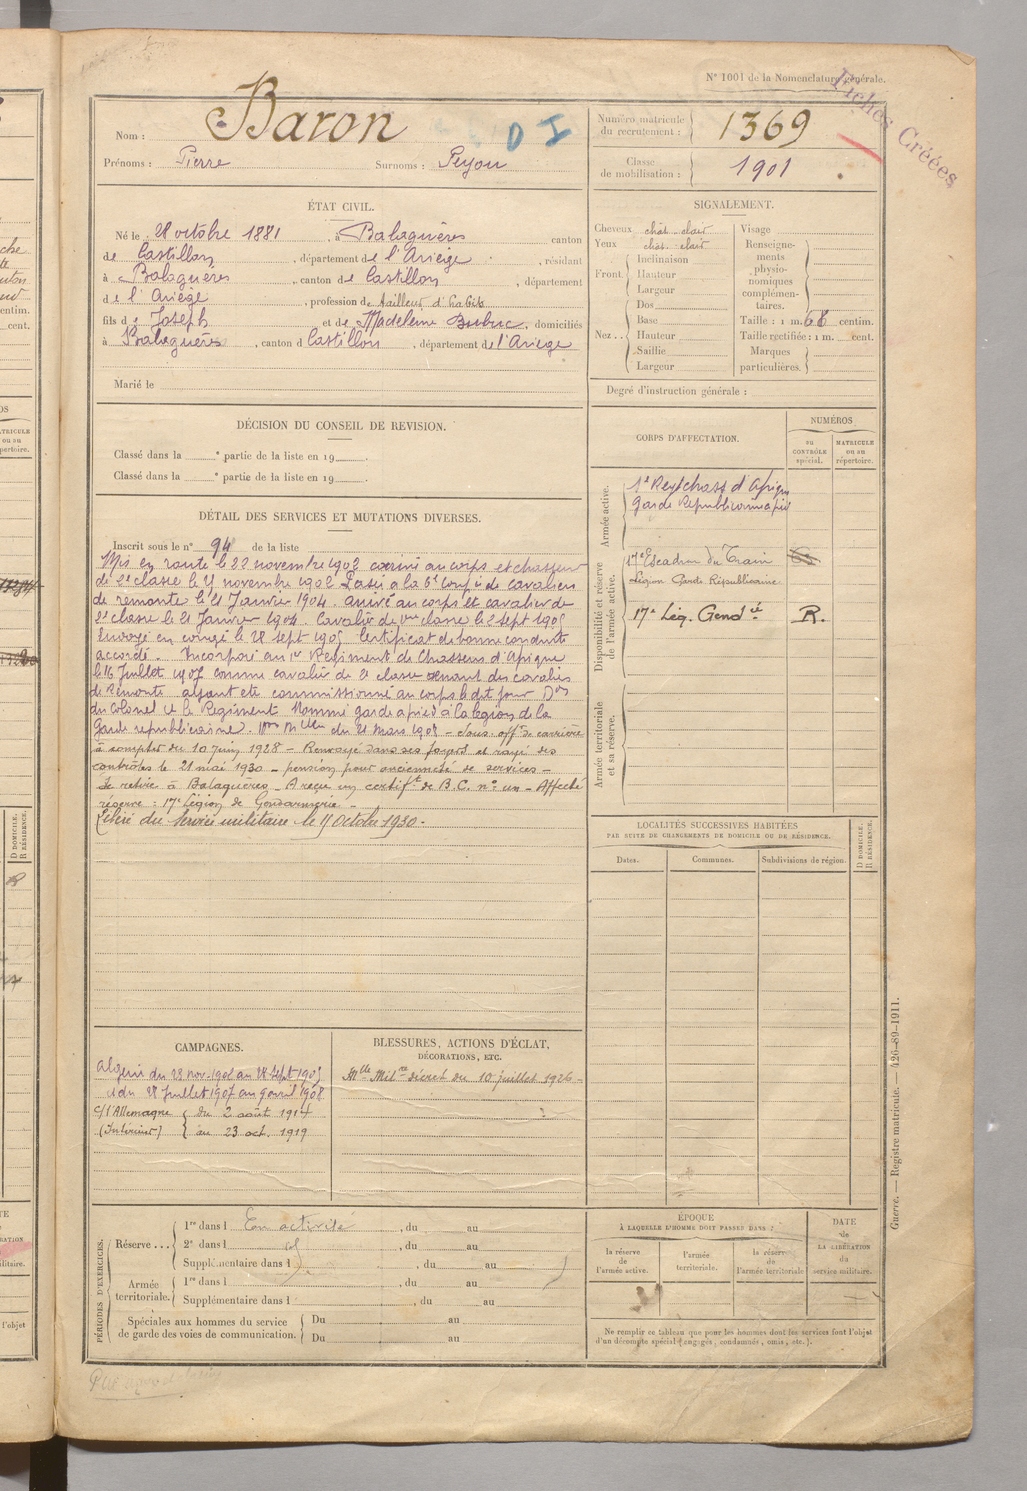 N° 1001 de la Nomenclature générale.
Fichés Créées
Nom : Baron D I
Prénoms : Pierre Surnoms : Peyou
Numéro matricule du recrutement : 1369
Classe de mobilisation : 1901
ÉTAT CIVIL.
Né le 28 octobre 1881, à Balaguères canton
de Castillon, département de l'Ariège, résidant
à Balaguères, canton de Castillon, département
de l'Ariège, profession de tailleur d'habits
fils de Joseph et de Madeleine Dubuc, domiciliés
à Balaguères, canton d Castillon, département de l'Ariège
Marié le
SIGNALEMENT.
Cheveux chât. clair
Yeux chât. clair
Front. Inclinaison
Hauteur
Largeur
Nez .. Dos
Base
Hauteur
Saillie
Largeur
Visage
Renseignements physionomiques complémentaires.
Taille : 1 m. 68 centim.
Taille rectifiée : 1 m. cent.
Marques particulières.
Degré d'instruction générale :
DÉCISION DU CONSEIL DE REVISION.
Classé dans la ° partie de la liste en 19 .
Classé dans la ° partie de la liste en 19 .
DÉTAIL DES SERVICES ET MUTATIONS DIVERSES.
Inscrit sous le n° 94 de la liste
Mis en route le 22 novembre 1902 arrivé au corps et chasseur
de 2e classe le novembre 1902 Passé à la 6e Compie de cavaliers
de remonte le 21 Janvier 1904. arrivé au corps et cavalier de
2e classe le 21 Janvier 1904. Cavalier de 1ère classe le 2 sept 1905
Envoyé en congé le 28 sept 1905 Certificat de bonne conduite
accordé. Incorporé au 1er Régiment de Chasseurs d'Afrique
le 16 Juillet 1907 comme cavalier de 2e classe venant des cavaliers
de Remonte ayant été commissionné au corps le dit jour Don
du Colonel Ct le Régiment Nommé garde à pied à la légion de la
Garde républicaine. du 21 Mars 1908 - Sous-offr de carrière
à compter du 10 juin 1928 - Renvoyé dans ses foyers et rayé des
contrôles le 21 mai 1930 - pension pour ancienneté de services -
Se retire à Balaguères - A reçu un certift de B.C. n° un - Affecté
réserve : 17e Légion de Gendarmerie -
Libéré du Service militaire le 11 Octobre 1930.
CORPS D'AFFECTATION.
NUMÉROS
au CONTRÔLE spécial.
MATRICULE ou au répertoire.
Armée active.
1er Régt chass d'Afrique
Garde Républicaine à pied
Disponibilité et réserve de l'armée active.
17e Escadron du Train
Légion Garde Républicaine
17e Lég. Gendie R.
Armée territoriale et sa réserve.
LOCALITÉS SUCCESSIVES HABITÉES
PAR SUITE DE CHANGEMENTS DE DOMICILE OU DE RÉSIDENCE.
Dates. Communes. Subdivisions de région.
D DOMICILE.
R RÉSIDENCE.
CAMPAGNES.
Algérie du 23 nov. 1902 au 28 Sept 1905
et du 28 Juillet 1907 au 9 avril 1908
c/ l'Allemagne du 2 août 1914
(Intérieur) au 23 oct. 1919
BLESSURES, ACTIONS D'ÉCLAT,
DÉCORATIONS, ETC.
Mlle Milre décret du 10 juillet 1926 -
PÉRIODES D'EXERCICES.
Réserve ... 1re dans l En activité, du au
2e dans l, du au
Supplémentaire dans l, du au
Armée territoriale. 1re dans l, du au
Supplémentaire dans l, du au
Spéciales aux hommes du service de garde des voies de communication. Du au
Du au
ÉPOQUE
À LAQUELLE L'HOMME DOIT PASSER DANS :
la réserve de l'armée active.
l'armée territoriale.
la réserve de l'armée territoriale
DATE de LA LIBÉRATION du service militaire.
Ne remplir ce tableau que pour les hommes dont les services font l'objet
d'un décompte spécial (engagés, condamnés, omis, etc.).
Guerre. — Registre matricule. — 426-89-1911.